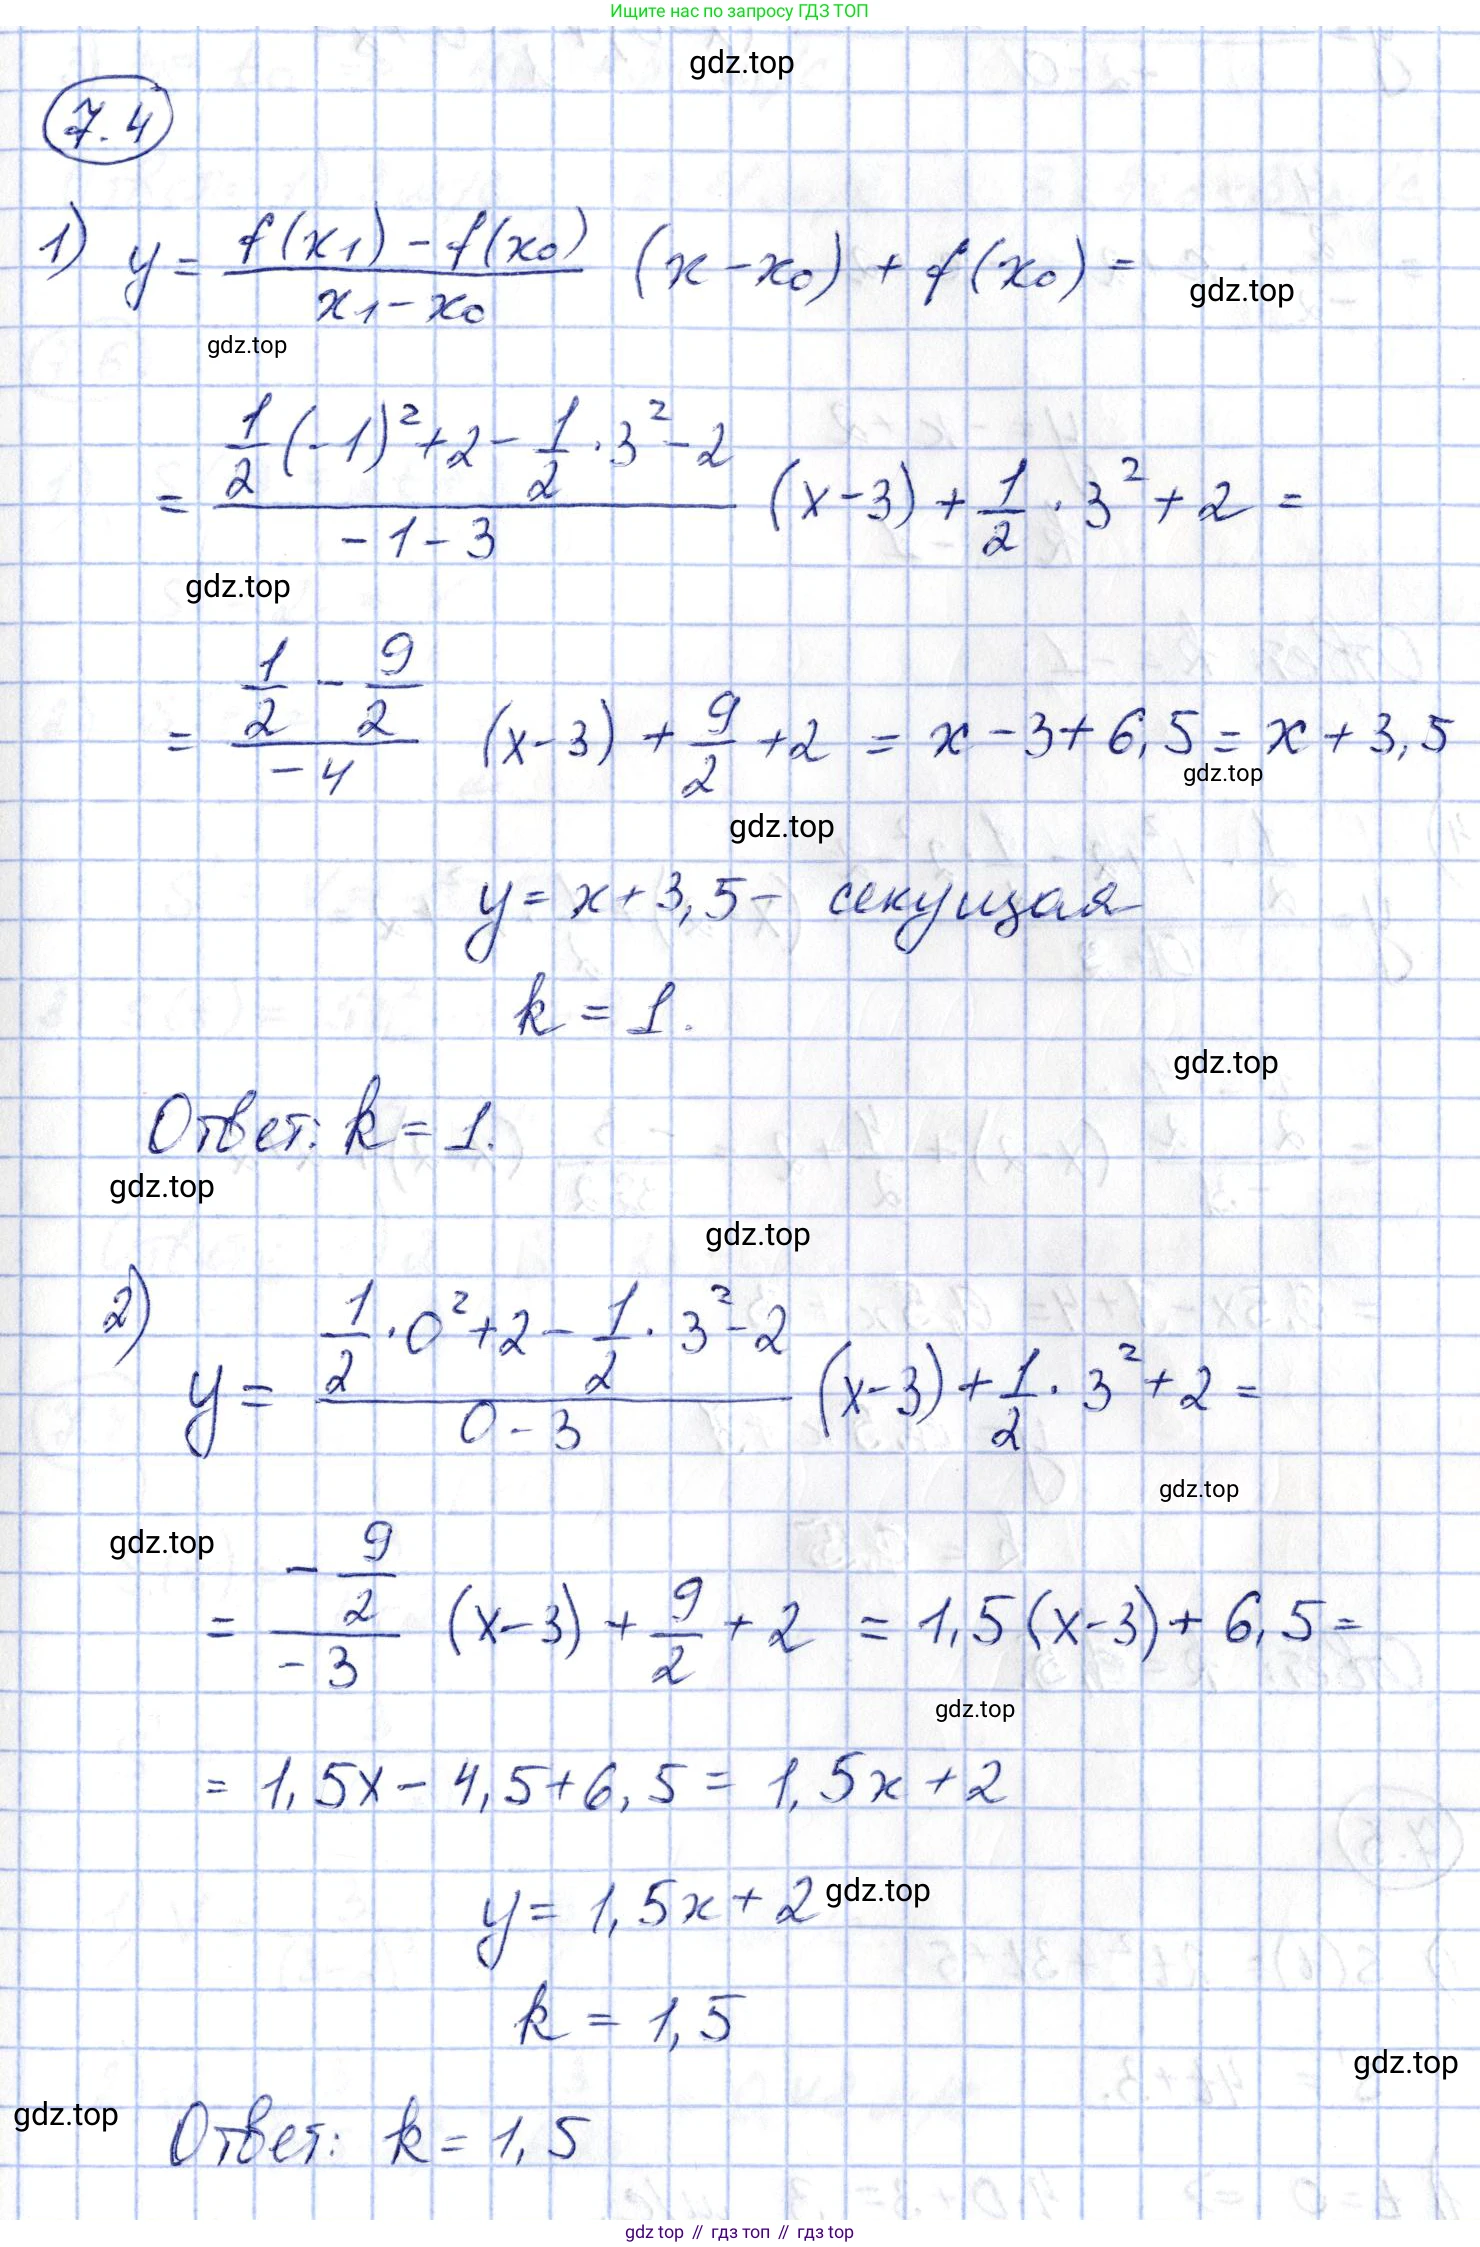 Ищите нас по запросу ГДЗ ТОП
gdz.top
7.4
1) y = (f(x₁) - f(x₀))/(x₁ - x₀) (x - x₀) + f(x₀) =
gdz.top
gdz.top
= (1/2 (-1)² + 2 - 1/2 · 3² - 2)/(-1 - 3) (x - 3) + 1/2 · 3² + 2 =
gdz.top
= (1/2 - 9/2)/(-4) (x - 3) + 9/2 + 2 = x - 3 + 6,5 = x + 3,5
gdz.top
gdz.top
y = x + 3,5 - секущая
k = 1.
gdz.top
Ответ: k = 1.
gdz.top
gdz.top
2) y = (1/2 · 0² + 2 - 1/2 · 3² - 2)/(0 - 3) (x - 3) + 1/2 · 3² + 2 =
gdz.top
gdz.top
= (- 9/2)/(-3) (x - 3) + 9/2 + 2 = 1,5 (x - 3) + 6,5 =
gdz.top
= 1,5x - 4,5 + 6,5 = 1,5x + 2
y = 1,5x + 2
gdz.top
k = 1,5
gdz.top
gdz.top
Ответ: k = 1,5
gdz top // гдз топ // гдз top